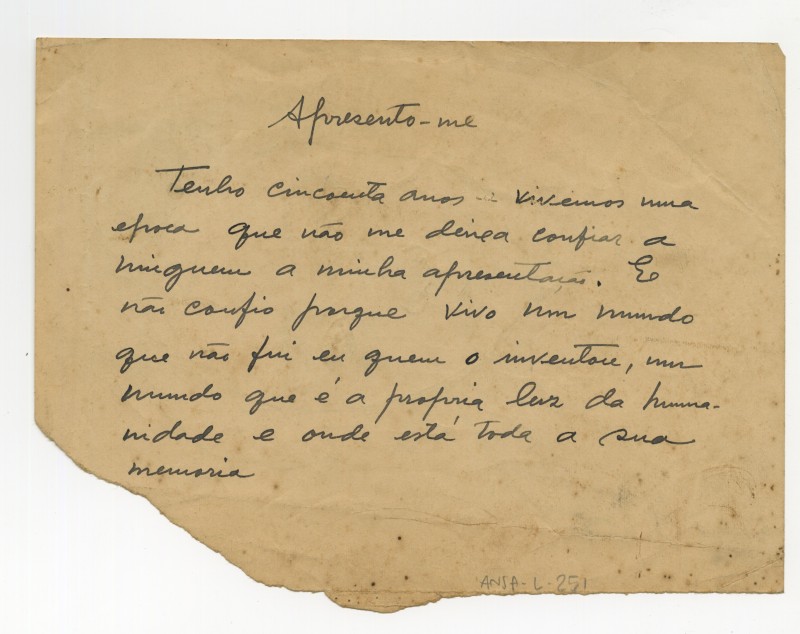 Apresento-me
Tenho cincoenta anos - vivemos uma
epoca que não me deixa confiar a
ninguem a minha apresentação. E
não confio porque vivo num mundo
que não fui eu quem o inventou, um
mundo que é a propria luz da huma-
nidade e onde está toda a sua
memoria
ANSA-L-251